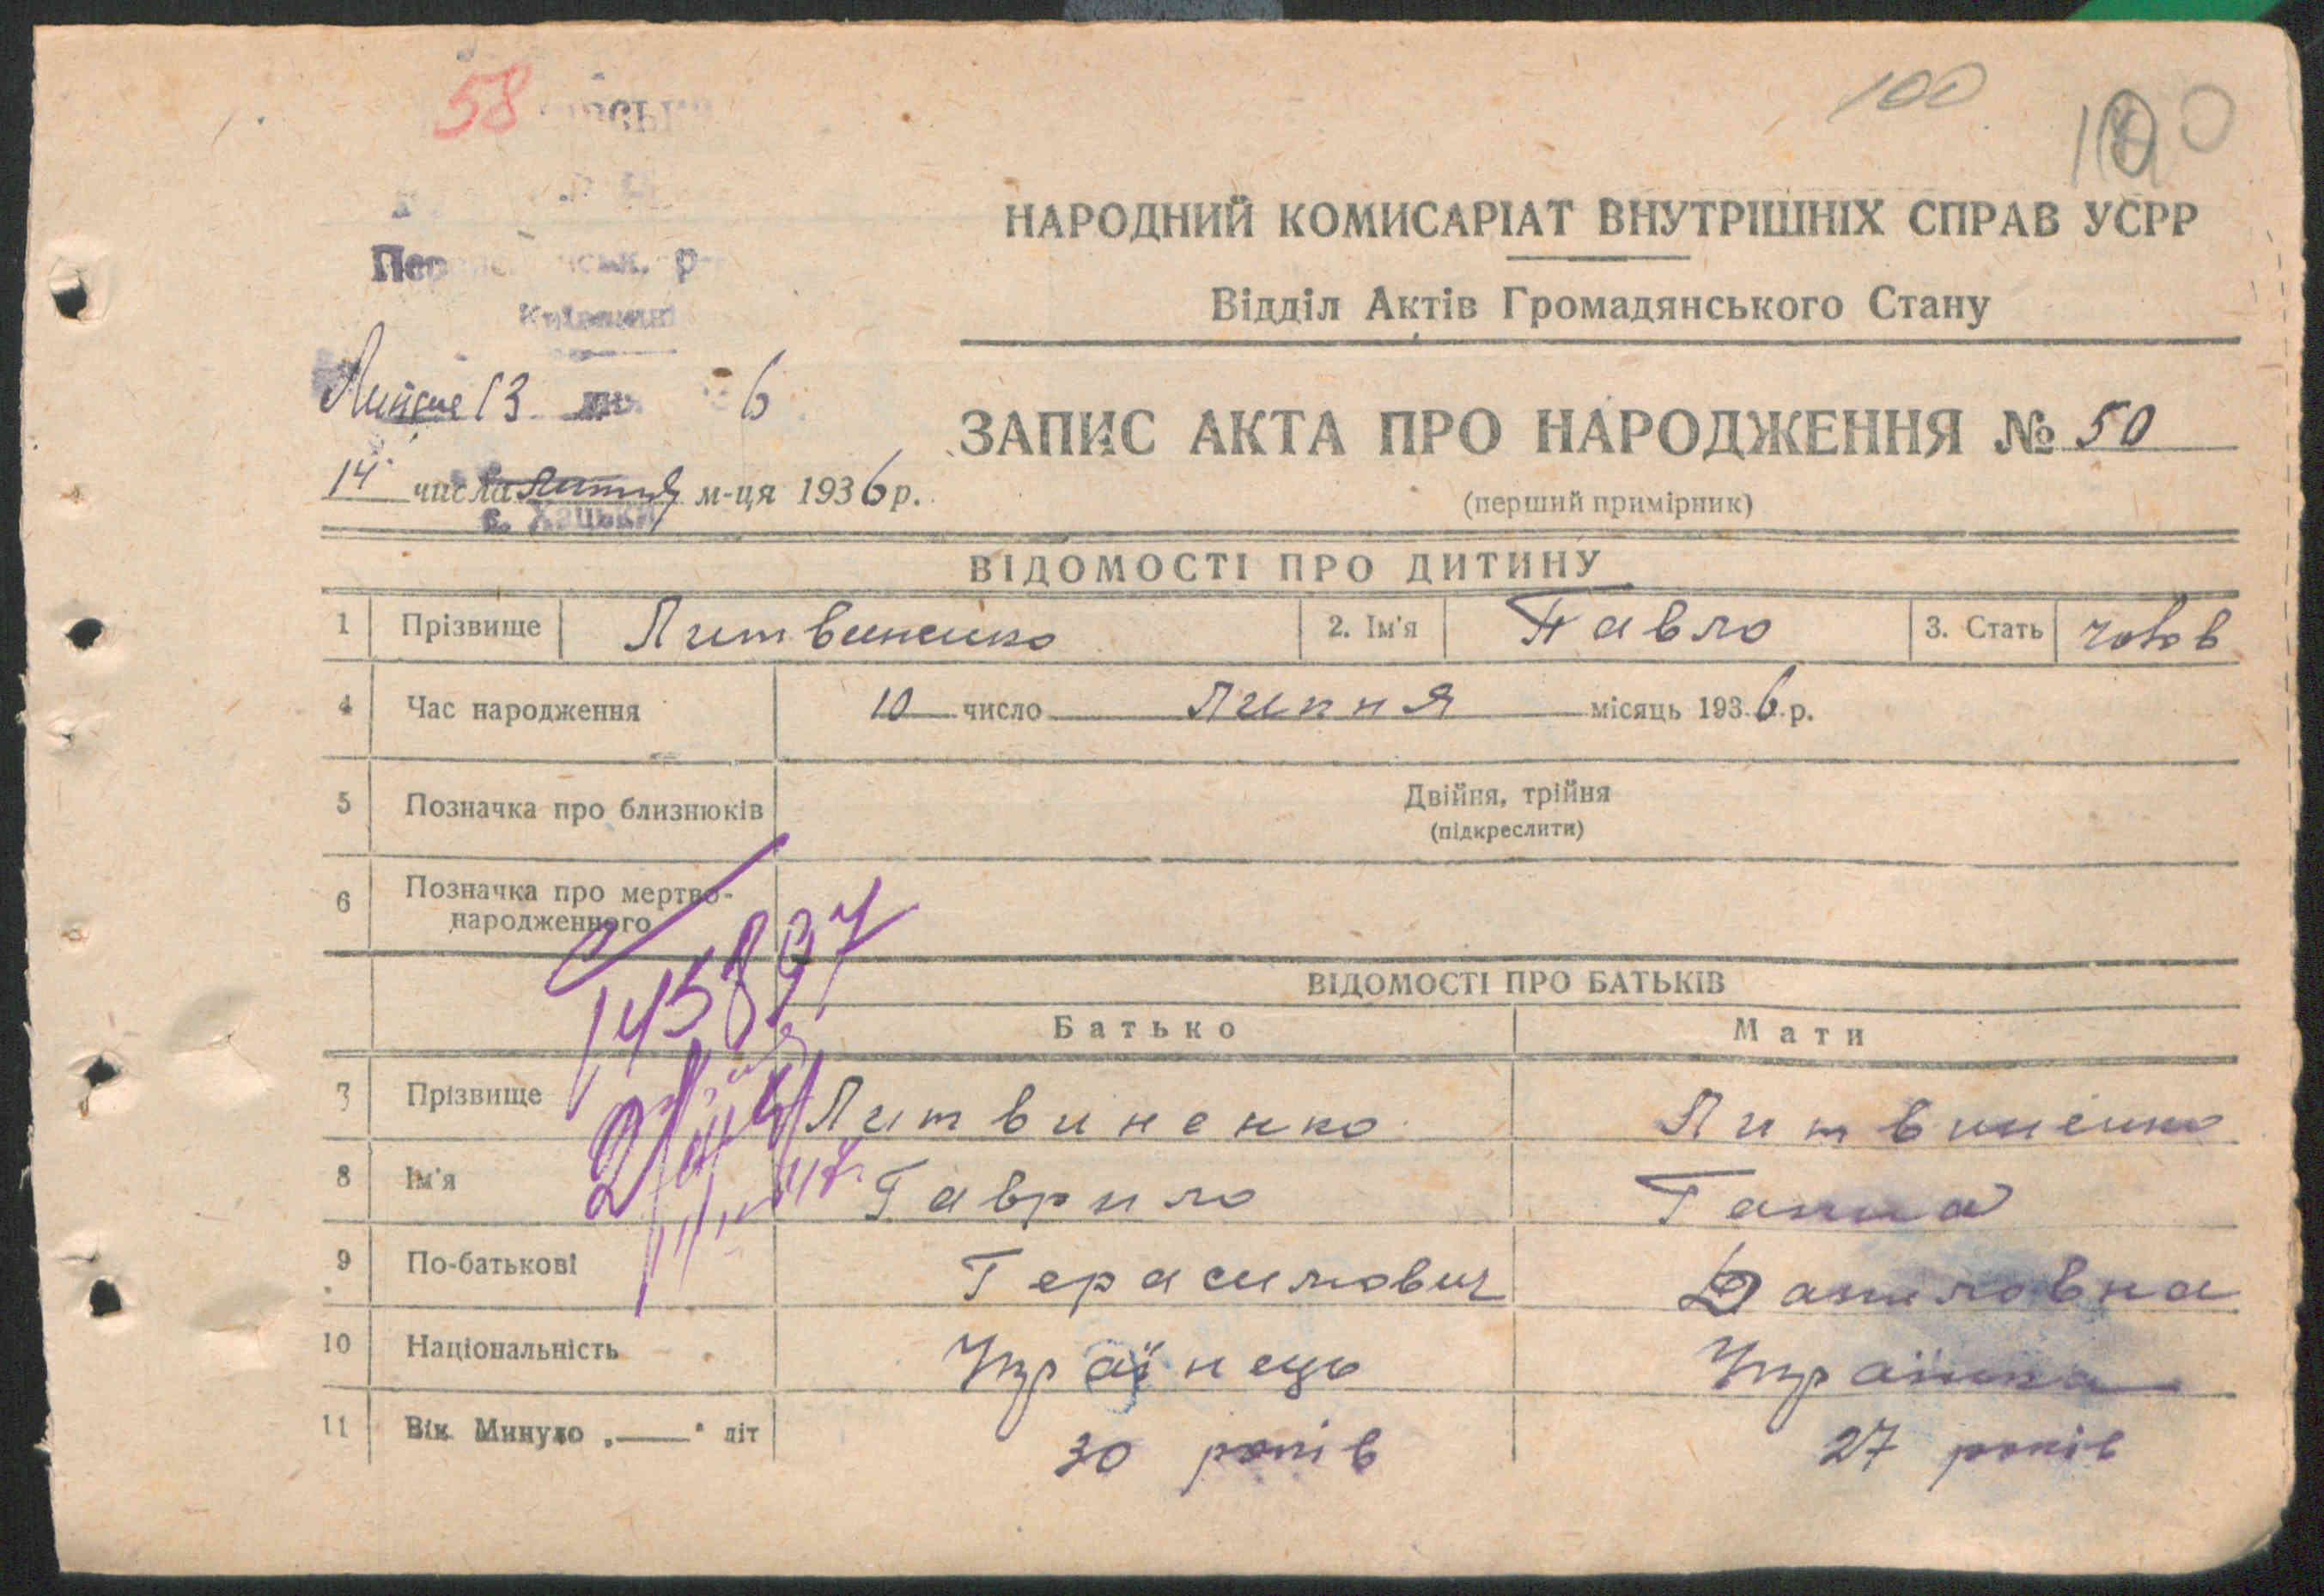 58
100
НАРОДНИЙ КОМИСАРІАТ ВНУТРІШНІХ СПРАВ УСРР
Відділ Актів Громадянського Стану
13 дня 6
ЗАПИС АКТА ПРО НАРОДЖЕННЯ № 50
14 числа липня м-ця 1936 р.
(перший примірник)
с. Хацьки
ВІДОМОСТІ ПРО ДИТИНУ
1 Прізвище Литвиненко 2. Ім'я Павло 3. Стать чолов
4 Час народження 10 число липня місяць 1936 р.
5 Позначка про близнюків Двійня, трійня
(підкреслити)
6 Позначка про мертво-
народженного
145897
ВІДОМОСТІ ПРО БАТЬКІВ
Батько Мати
7 Прізвище Литвиненко Литвиненко
8 Ім'я Гаврило Ганна
9 По-батькові Герасимович Даниловна
10 Національність Українець Українка
11 Вік Минуло „—“ літ 30 років 27 років